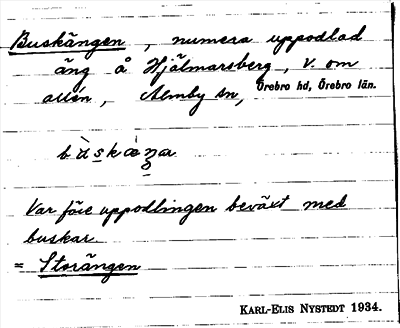 Buskängen, numera uppodlad
äng å Hjälmarsberg, v. om
allén, Almby sn, Örebro hd, Örebro län.
Var före uppodlingen beväxt med
buskar.
= Storängen
KARL-ELIS NYSTEDT 1934.